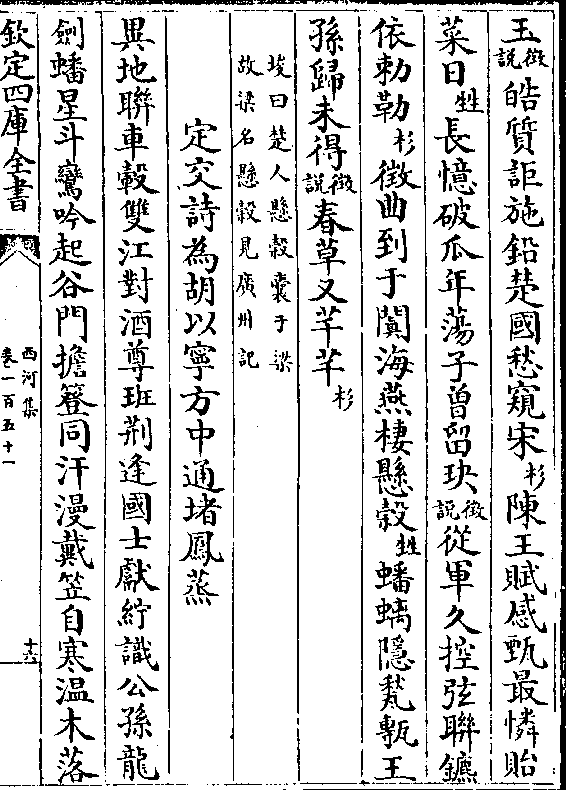 王徵説皓質詎施鉛楚國愁窺宋杉陳王賦感甄最憐貽
菜日甡長憶破瓜年蕩子曾留玦徵説從軍久控弦聯鑣
依勅勒杉徵曲到于闐海燕棲懸瑴甡蟠螭隱甃甎王
孫歸未得徵説春草又芊芊杉
埈曰楚人懸穀囊于梁
故梁名懸穀見廣州記
定交詩為胡以寧方中通堵鳳蒸
異地聯車轂雙江對酒尊班荆逢國士獻紵識公孫龍
劍蟠星斗鸞吟起谷門擔簦同汗漫戴笠自寒温木落
欽定四庫全書
西河集
卷一百五十一
十六